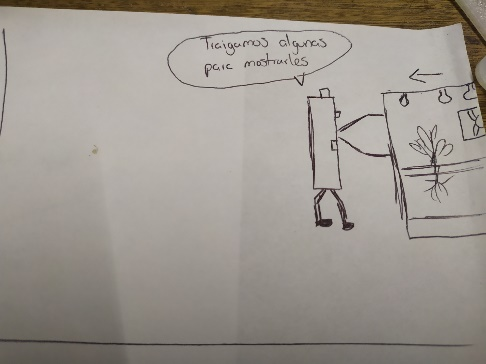 Traigamos algunas
para mostrarles